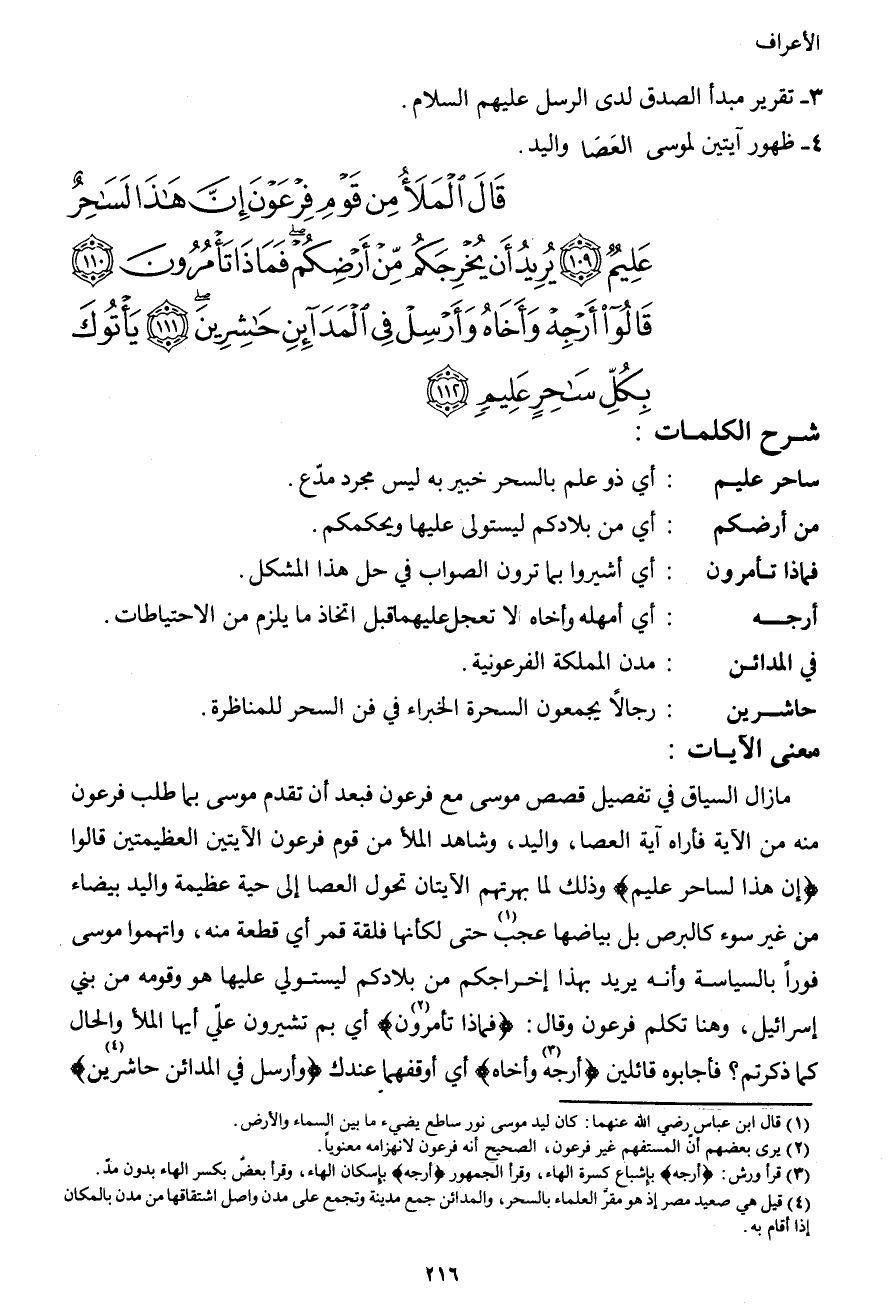 الأعراف
٣ـ تقرير مبدأ الصدق لدى الرسل عليهم السلام .
٤ـ ظهور آيتين لموسى العَصَا واليد .
قَالَ ٱلْمَلَأُ مِن قَوْمِ فِرْعَوْنَ إِنَّ هَٰذَا لَسَٰحِرٌ
عَلِيمٌ ١٠٩ يُرِيدُ أَن يُخْرِجَكُم مِّنْ أَرْضِكُمْۖ فَمَاذَا تَأْمُرُونَ ١١٠
قَالُوٓاْ أَرْجِهْ وَأَخَاهُ وَأَرْسِلْ فِى ٱلْمَدَآئِنِ حَٰشِرِينَۖ ١١١ يَأْتُوكَ
بِكُلِّ سَٰحِرٍ عَلِيمٖ ١١٢
شـرح الكلمـات :
ساحر عليـم : أي ذو علم بالسحر خبير به ليس مجرد مدّع .
من أرضـكم : أي من بلادكم ليستولى عليها ويحكمكم .
فماذا تـأمرون : أي أشيروا بما ترون الصواب في حل هذا المشكل .
أرجـــه : أي أمهله وأخاه لا تعجل عليهما قبل اتخاذ ما يلزم من الاحتياطات .
في المدائـن : مدن المملكة الفرعونية .
حاشـــرين : رجالاً يجمعون السحرة الخبراء في فن السحر للمناظرة .
معنى الآيـات :
مازال السياق في تفصيل قصص موسى مع فرعون فبعد أن تقدم موسى بما طلب فرعون
منه من الآية فأراه آية العصا، واليد، وشاهد الملأ من قوم فرعون الآيتين العظيمتين قالوا
﴿إن هذا لساحر عليم﴾ وذلك لما بهرتهم الآيتان تحول العصا إلى حية عظيمة واليد بيضاء
من غير سوء كالبرص بل بياضها عجب(١) حتى لكأنها فلقة قمر أي قطعة منه، واتهموا موسى
فوراً بالسياسـة وأنـه يريد بهذا إخـراجكم من بلادكم ليستـولي عليها هو وقومه من بني
إسرائيل، وهنا تكلم فرعون وقال : ﴿فماذا تأمرون(٢)﴾ أي بم تشيرون عليّ أيها الملأ والحال
كما ذكرتم؟ فأجابوه قائلين ﴿أرجه(٣) وأخاه﴾ أي أوقفهما عندك ﴿وأرسل في المدائن حاشرين(٤)﴾
(١) قال ابن عباس رضي الله عنهما : كان ليد موسى نور ساطع يضيء ما بين السماء والأرض.
(٢) يرى بعضهم أنّ المستفهم غير فرعون، الصحيح أنه فرعون لانهزامه معنوياً.
(٣) قرأ ورش : ﴿أرجه﴾ بإشباع كسرة الهاء، وقرأ الجمهور ﴿أرجه﴾ بإسكان الهاء، وقرأ بعضٌ بكسر الهاء بدون مدّ.
(٤) قيل هي صعيد مصر إذ هو مقرّ العلماء بالسحر، والمدائن جمع مدينة وتجمع على مدن واصل اشتقاقها من مدن بالمكان
إذا أقام به .
٢١٦